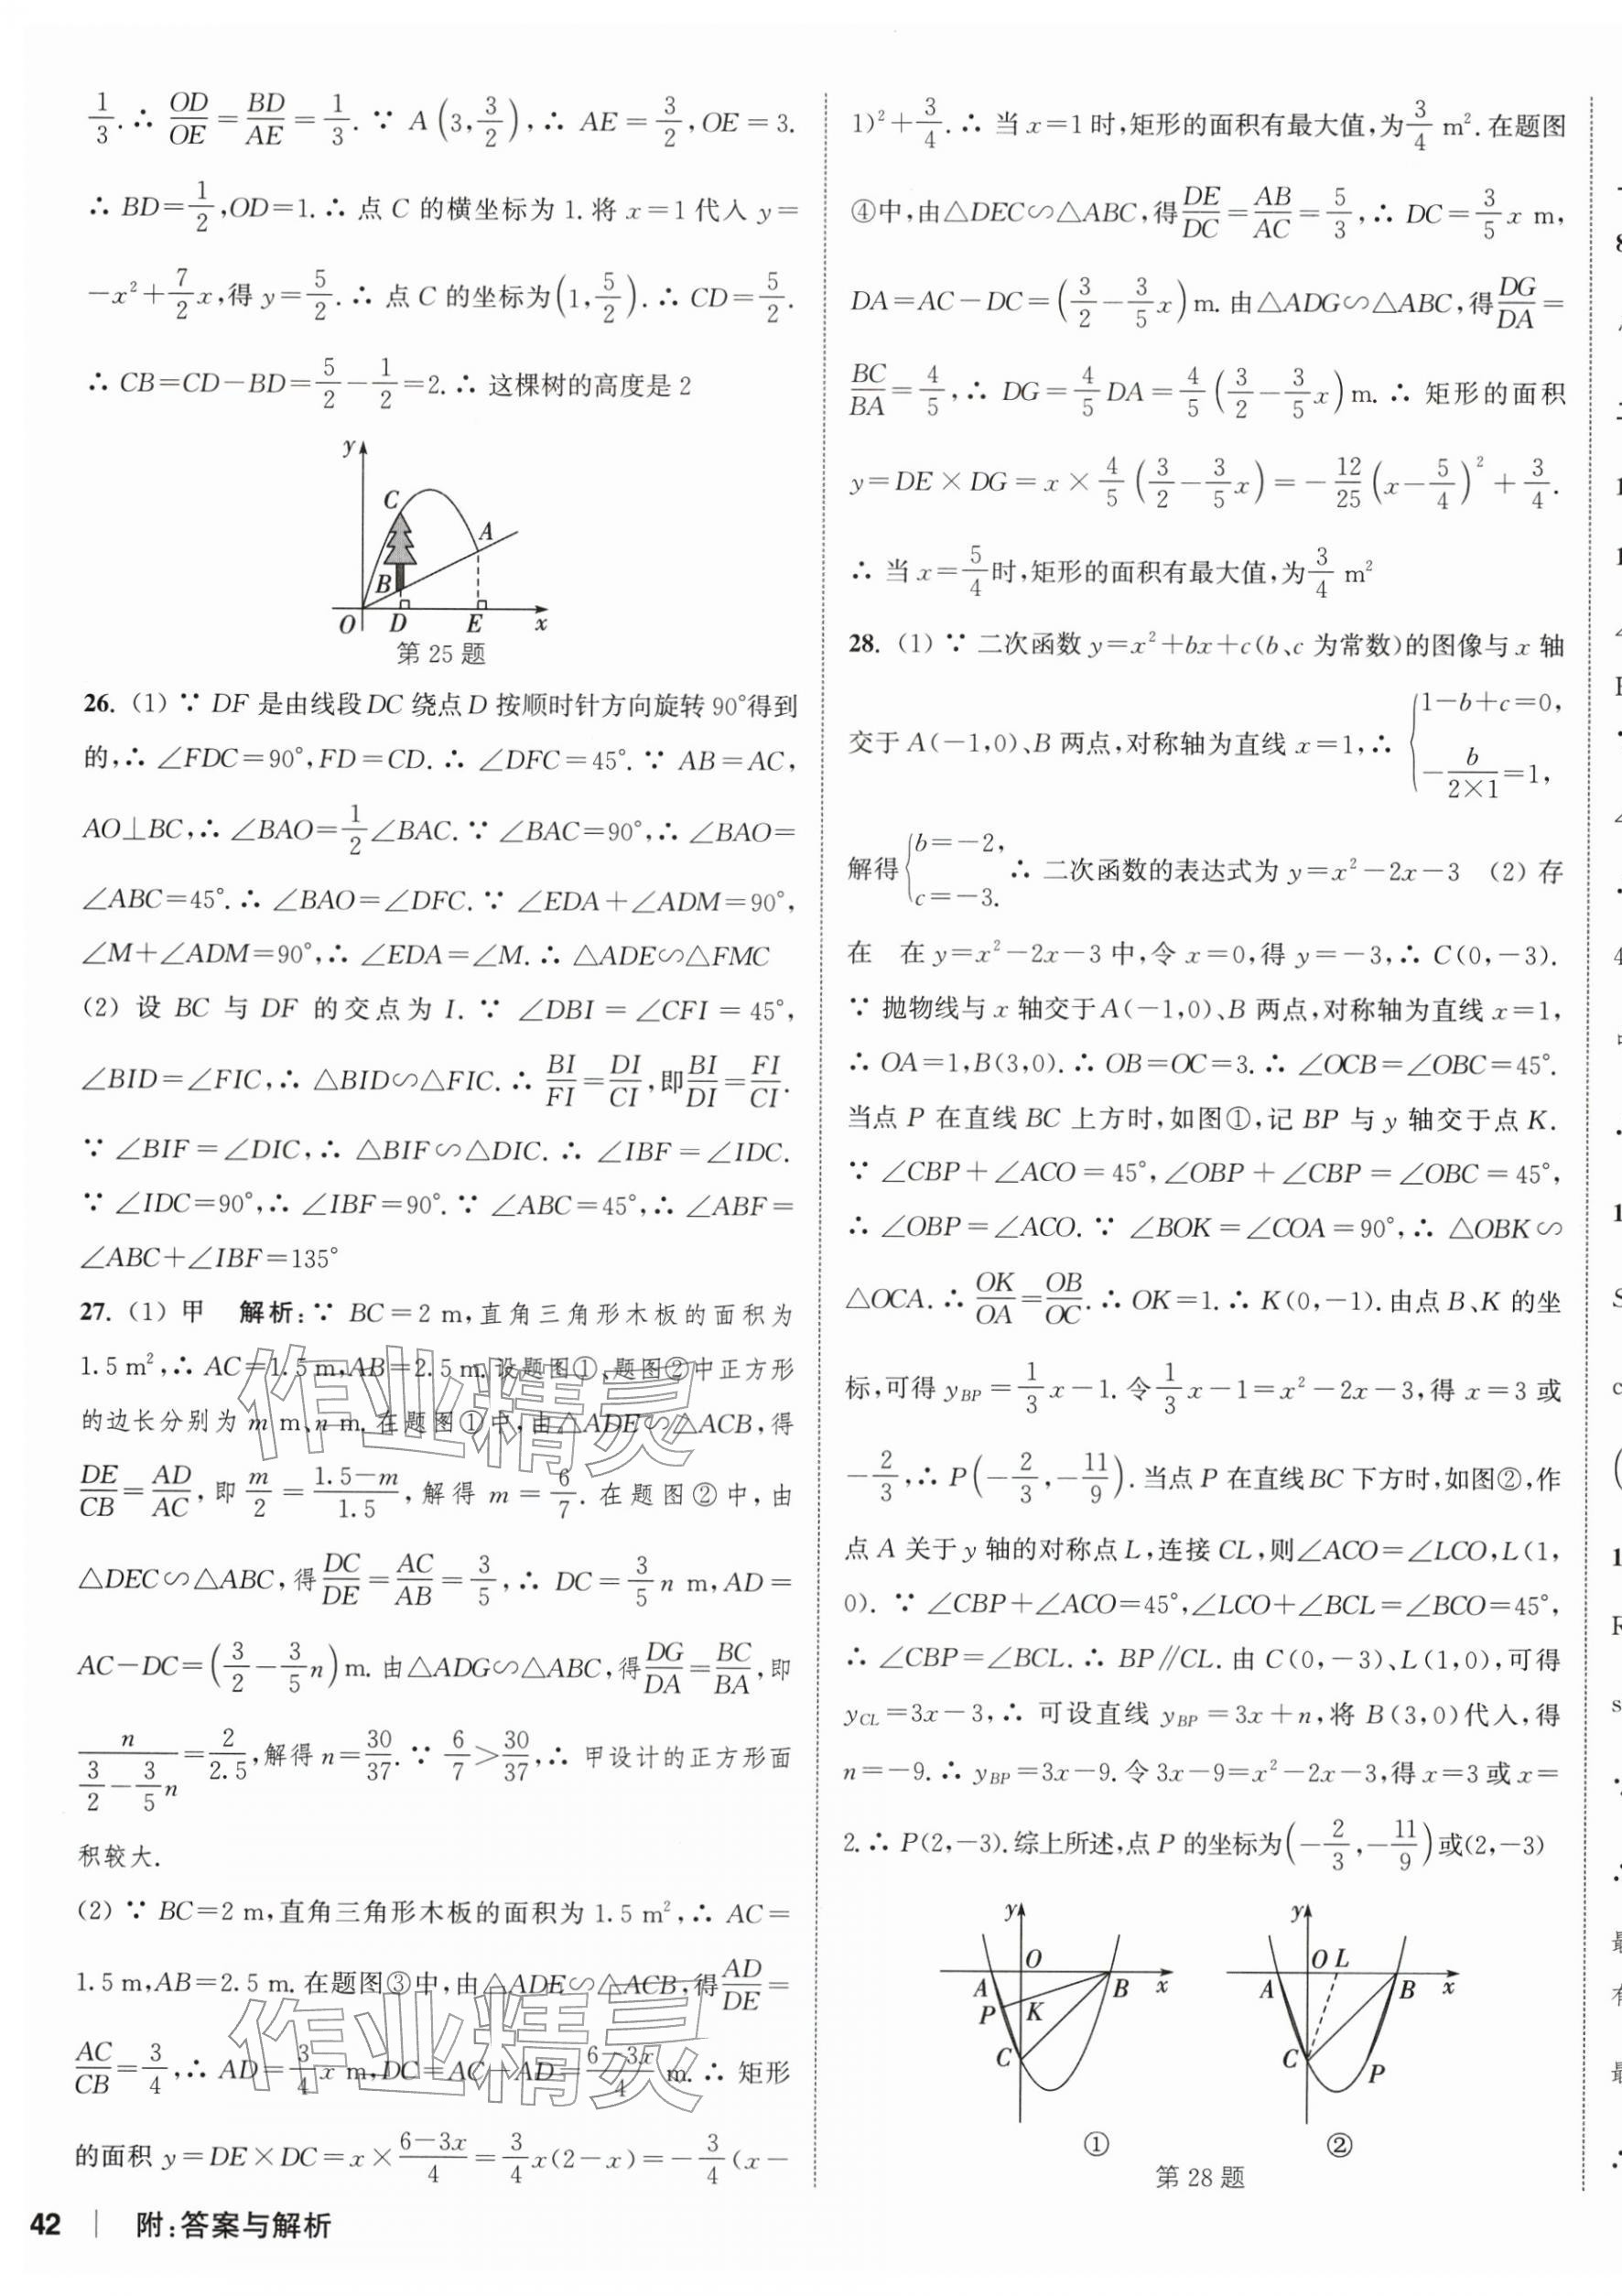 1/3.∴ OD/OE=BD/AE=1/3.∵ A(3,3/2),∴ AE=3/2,OE=3.
∴ BD=1/2,OD=1.∴ 点 C 的横坐标为 1.将 x=1 代入 y=
-x²+7/2x,得 y=5/2.∴ 点 C 的坐标为(1,5/2).∴ CD=5/2.
∴ CB=CD-BD=5/2-1/2=2.∴ 这棵树的高度是 2
y
C
A
B
O D E x
第 25 题
26. (1) ∵ DF 是由线段 DC 绕点 D 按顺时针方向旋转 90°得到
的,∴ ∠FDC=90°,FD=CD.∴ ∠DFC=45°.∵ AB=AC,
AO⊥BC,∴ ∠BAO=1/2∠BAC.∵ ∠BAC=90°,∴ ∠BAO=
∠ABC=45°.∴ ∠BAO=∠DFC.∵ ∠EDA+∠ADM=90°,
∠M+∠ADM=90°,∴ ∠EDA=∠M.∴ △ADE∽△FMC
(2) 设 BC 与 DF 的交点为 I.∵ ∠DBI=∠CFI=45°,
∠BID=∠FIC,∴ △BID∽△FIC.∴ BI/FI=DI/CI,即BI/DI=FI/CI.
∵ ∠BIF=∠DIC,∴ △BIF∽△DIC.∴ ∠IBF=∠IDC.
∵ ∠IDC=90°,∴ ∠IBF=90°.∵ ∠ABC=45°,∴ ∠ABF=
∠ABC+∠IBF=135°
27. (1) 甲 解析:∵ BC=2 m,直角三角形木板的面积为
1.5 m²,∴ AC=1.5 m,AB=2.5 m.设题图①、题图②中正方形
的边长分别为 m m、n m.在题图①中,由△ADE∽△ACB,得
DE/CB=AD/AC,即 m/2=(1.5-m)/1.5,解得 m=6/7.在题图②中,由
△DEC∽△ABC,得DC/DE=AC/AB=3/5,∴ DC=3/5n m,AD=
AC-DC=(3/2-3/5n)m.由△ADG∽△ABC,得DG/DA=BC/BA,即
n/(3/2-3/5n)=2/2.5,解得 n=30/37.∵ 6/7>30/37,∴ 甲设计的正方形面
积较大.
(2) ∵ BC=2 m,直角三角形木板的面积为 1.5 m²,∴ AC=
1.5 m,AB=2.5 m.在题图③中,由△ADE∽△ACB,得AD/DE=
AC/CB=3/4,∴ AD=3/4x m,DC=AC-AD=(6-3x)/4 m.∴ 矩形
的面积 y=DE×DC=x×(6-3x)/4=3/4x(2-x)=-3/4(x-
作业精灵
作业精灵
42 | 附:答案与解析
1)²+3/4.∴ 当 x=1 时,矩形的面积有最大值,为3/4 m².在题图
④中,由△DEC∽△ABC,得DE/DC=AB/AC=5/3,∴ DC=3/5x m,
DA=AC-DC=(3/2-3/5x)m.由△ADG∽△ABC,得DG/DA=
BC/BA=4/5,∴ DG=4/5DA=4/5(3/2-3/5x)m.∴ 矩形的面积
y=DE×DG=x×4/5(3/2-3/5x)=-12/25(x-5/4)²+3/4.
∴ 当 x=5/4时,矩形的面积有最大值,为3/4 m²
28. (1) ∵ 二次函数 y=x²+bx+c(b、c 为常数)的图像与 x 轴
交于 A(-1,0)、B 两点,对称轴为直线 x=1,∴ {1-b+c=0, -b/(2×1)=1,
解得{b=-2, c=-3. ∴ 二次函数的表达式为 y=x²-2x-3 (2) 存
在 在 y=x²-2x-3 中,令 x=0,得 y=-3,∴ C(0,-3).
∵ 抛物线与 x 轴交于 A(-1,0)、B 两点,对称轴为直线 x=1,
∴ OA=1,B(3,0).∴ OB=OC=3.∴ ∠OCB=∠OBC=45°.
当点 P 在直线 BC 上方时,如图①,记 BP 与 y 轴交于点 K.
∵ ∠CBP+∠ACO=45°,∠OBP+∠CBP=∠OBC=45°,
∴ ∠OBP=∠ACO.∵ ∠BOK=∠COA=90°,∴ △OBK∽
△OCA.∴ OK/OA=OB/OC.∴ OK=1.∴ K(0,-1).由点 B、K 的坐
标,可得 y_BP=1/3x-1.令1/3x-1=x²-2x-3,得 x=3 或
-2/3,∴ P(-2/3,-11/9).当点 P 在直线 BC 下方时,如图②,作
点 A 关于 y 轴的对称点 L,连接 CL,则∠ACO=∠LCO,L(1,
0). ∵ ∠CBP+∠ACO=45°,∠LCO+∠BCL=∠BCO=45°,
∴ ∠CBP=∠BCL.∴ BP∥CL.由 C(0,-3)、L(1,0),可得
y_CL=3x-3,∴ 可设直线 y_BP=3x+n,将 B(3,0)代入,得
n=-9.∴ y_BP=3x-9.令 3x-9=x²-2x-3,得 x=3 或 x=
2.∴ P(2,-3).综上所述,点 P 的坐标为(-2/3,-11/9)或(2,-3)
y
O
A B x
P K
C
①
y
O L
A B x
C P
②
第 28 题